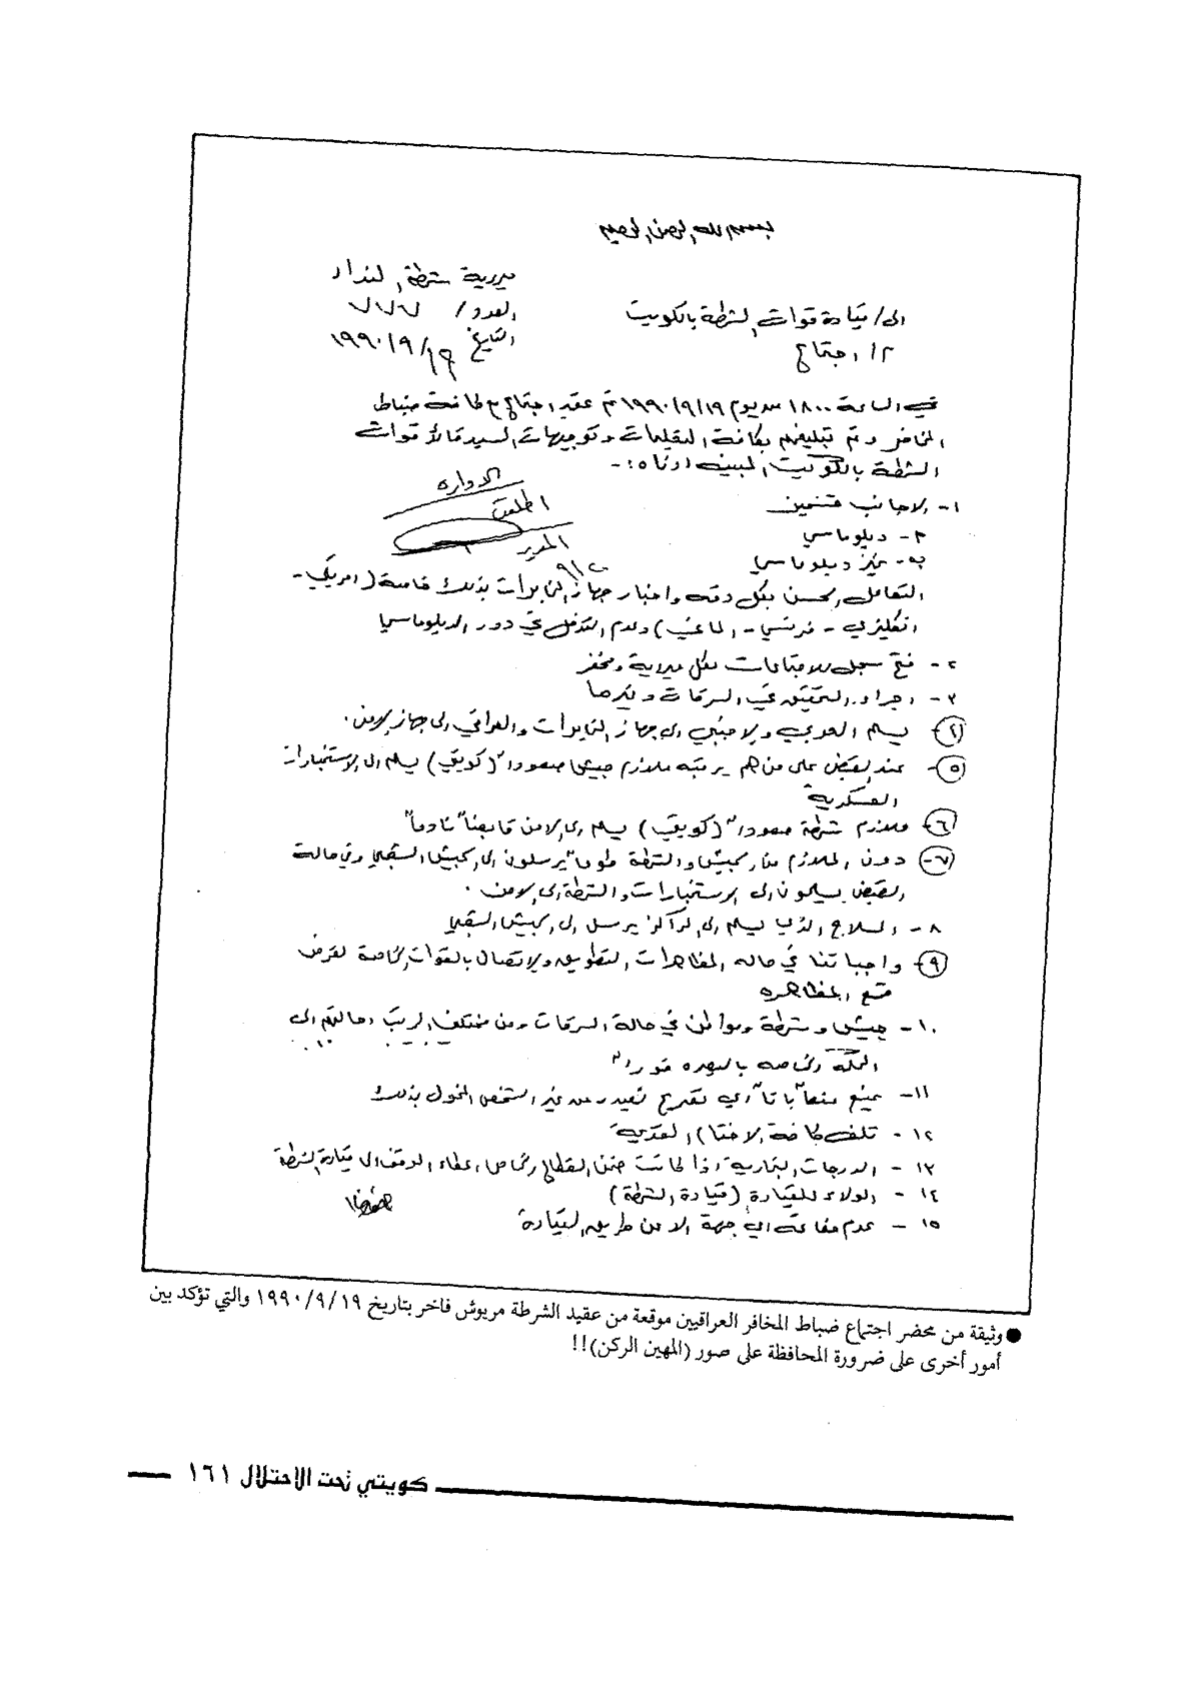 بسم الله الرحمن الرحيم
مديرية شرطة النداء
العدد / ٧٧٧
التاريخ ١٩٩٠/٩/١٩
الى / قيادة قوات الشرطة بالكويت
م / اجتماع
في الساعة ١٨٠٠ من يوم ١٩٩٠/٩/١٩ تم عقد اجتماع مع كافة ضباط
المخافر وتم تبليغهم بكافة التعليمات وتوجيهات السيد قائد قوات
الشرطة بالكويت المبينه ادناه :-
الاداره
اطلعت
المدير
٩/٢٠
١- الاجانب قسمين
٢- دبلوماسي
ب- غير دبلوماسي
التعامل الحسن بكل دقه واخبار جهاز المخابرات بذلك خاصة (امريكي -
انكليزي - فرنسي - الماني) وعدم التدخل في دور الدبلوماسي
٢- فتح سجل للاجتماعات بكل مديرية ومخفر
٣- اجراء التحقيق في السرقات وغيرها
٤- يسلم العربي والاجنبي الى جهاز المخابرات والعراقي الى جهاز الامن .
٥- عند القبض على من هم برتبه ملازم جيش صعوداً (كويتي) يسلم الى الاستخبارات
العسكرية
٦- ملازم شرطة صعوداً (كويتي) يسلم الى الامن
٧- دون الملازم من الجيش والشرطة طوعاً يرسلون الى الجيش الشعبي وفي حالة
القبض يسلمون الى الاستخبارات والشرطة الى الامن .
٨- السلاح الذي يسلم الى المراكز يرسل الى الجيش الشعبي
٩- واجباتنا في حاله المظاهرات التطويق والاتصال بالقوات الخاصة لغرض
قمع المظاهره
١٠- جيش وشرطة ومواطن في حالة السرقات ومن مختلف الرتب احالتهم الى
المحكمة الخاصه بالبصره فوراً
١١- يمنع منعاً باتاً اي تصريح يصدر من غير الشخص المخول بذلك
١٢- تلف كافة الاختام القديمة
١٣- الدرجات البخارية اذا كانت ضمن القطاع الخاص اعطاء الموقف الى قيادة الشرطة
١٤- الولاء للقيادة (قيادة الشرطة)
١٥- عدم مفاتحة اي جهة الا عن طريق القيادة
● وثيقة من محضر اجتماع ضباط المخافر العراقيين موقعة من عقيد الشرطة مربوش فاخر بتاريخ ١٩٩٠/٩/١٩ والتي تؤكد بين
أمور أخرى على ضرورة المحافظة على صور (المهين الركن)!!
كويتي تحت الاحتلال ١٦١